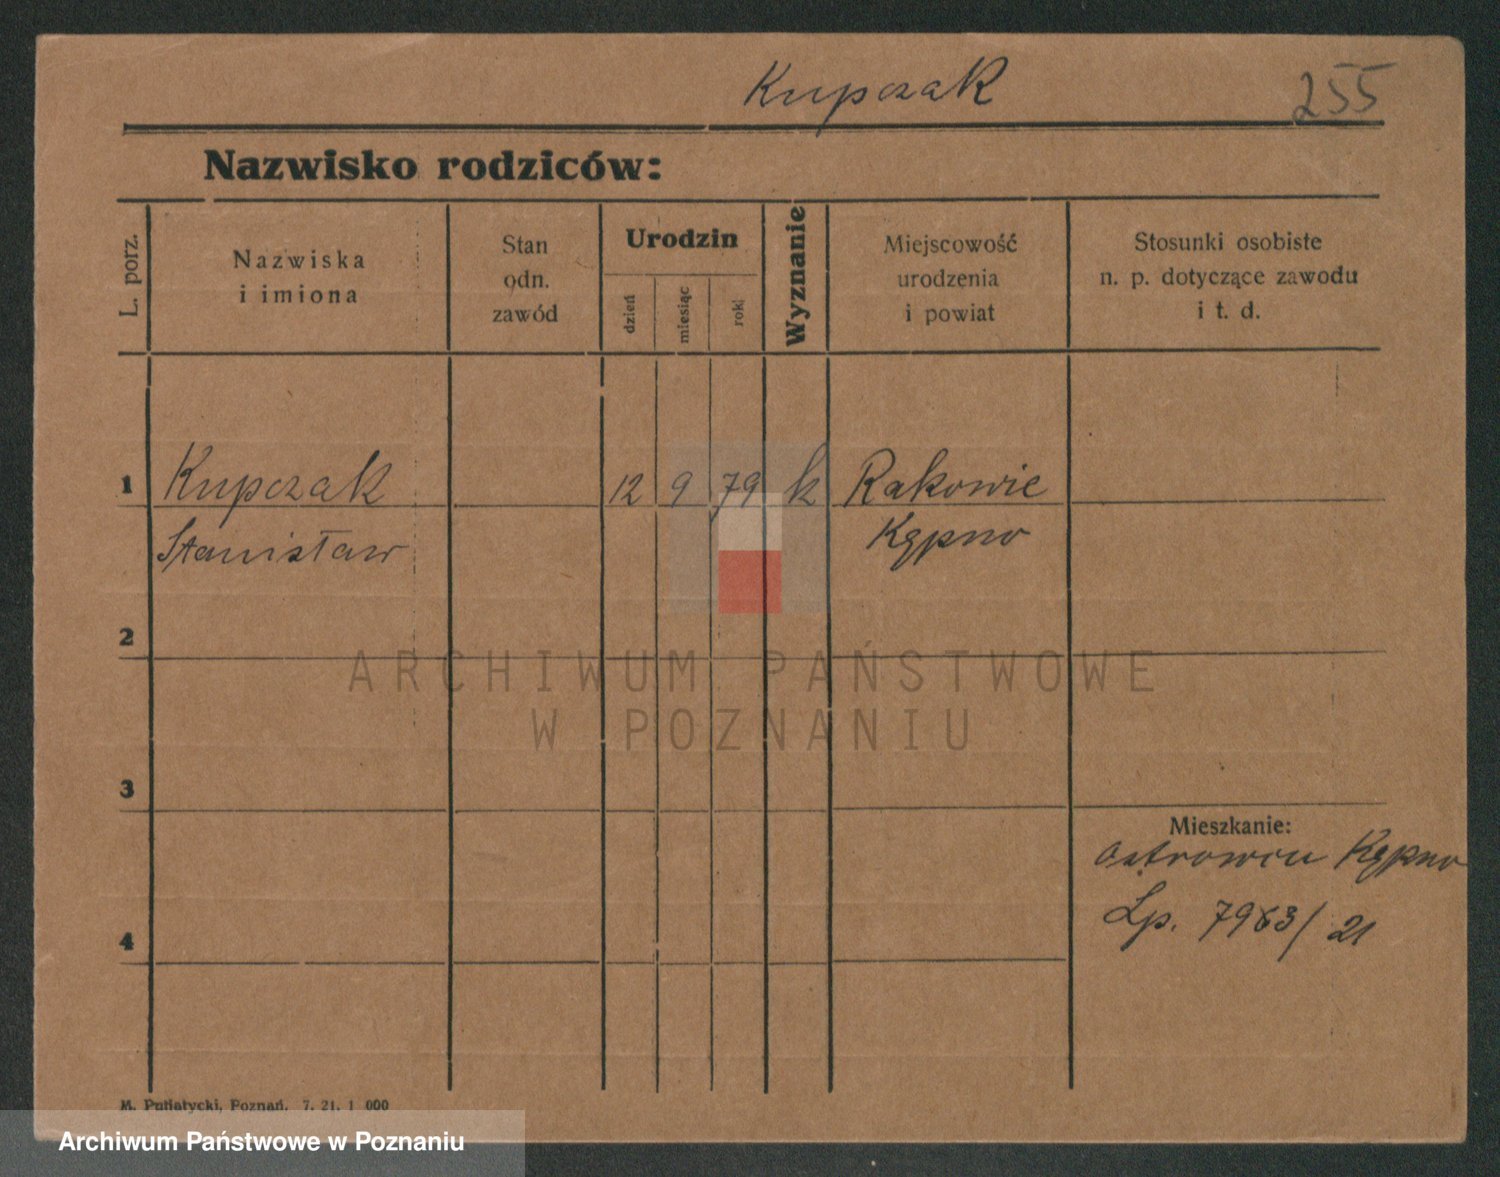 Kupczak 255
Nazwisko rodziców:
L. porz.
Nazwiska
i imiona
Stan
odn.
zawód
Urodzin
dzień
miesiąc
rok
Wyznanie
Miejscowość
urodzenia
i powiat
Stosunki osobiste
n. p. dotyczące zawodu
i t. d.
1 Kupczak 12 9 79 k Rakowie
Stanisław Kępno
2
ARCHIWUM PAŃSTWOWE
W POZNANIU
3
Mieszkanie:
Ostrowiu Kępno
Lp. 7963/21
4
M. Putiatycki, Poznań. 7. 21. 1 000
Archiwum Państwowe w Poznaniu